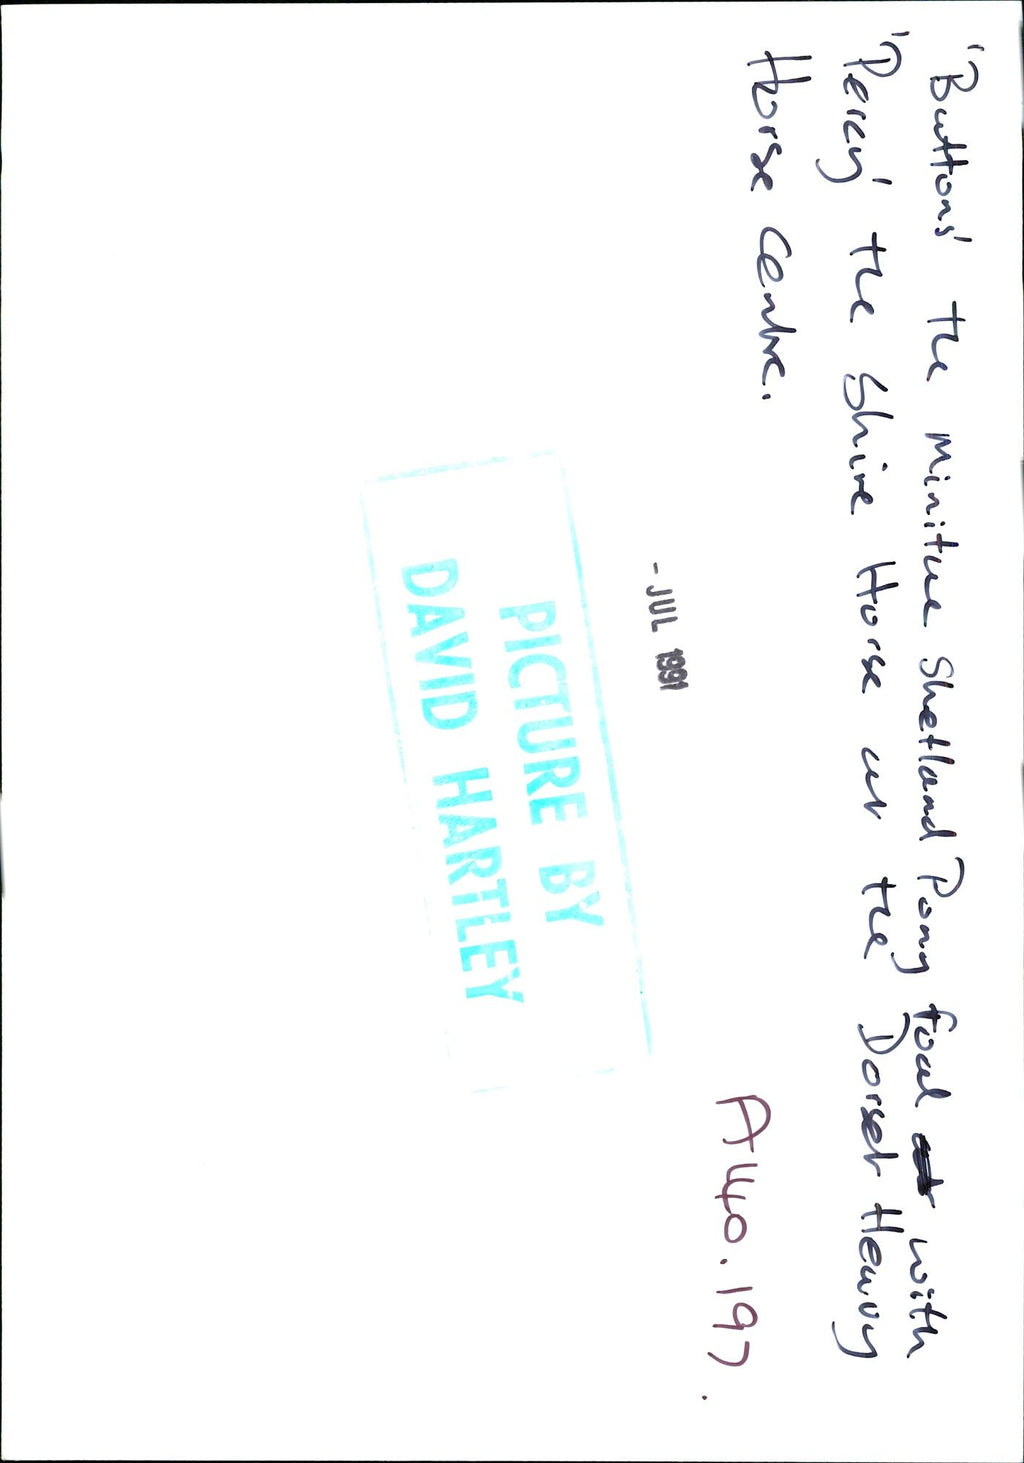 'Buttons' the miniture Shetland Pony foal with
'Percy' the Shire Horse at the Dorset Heavy
Horse Centre.
- JUL 1991
PICTURE BY
DAVID HARTLEY
A440.197